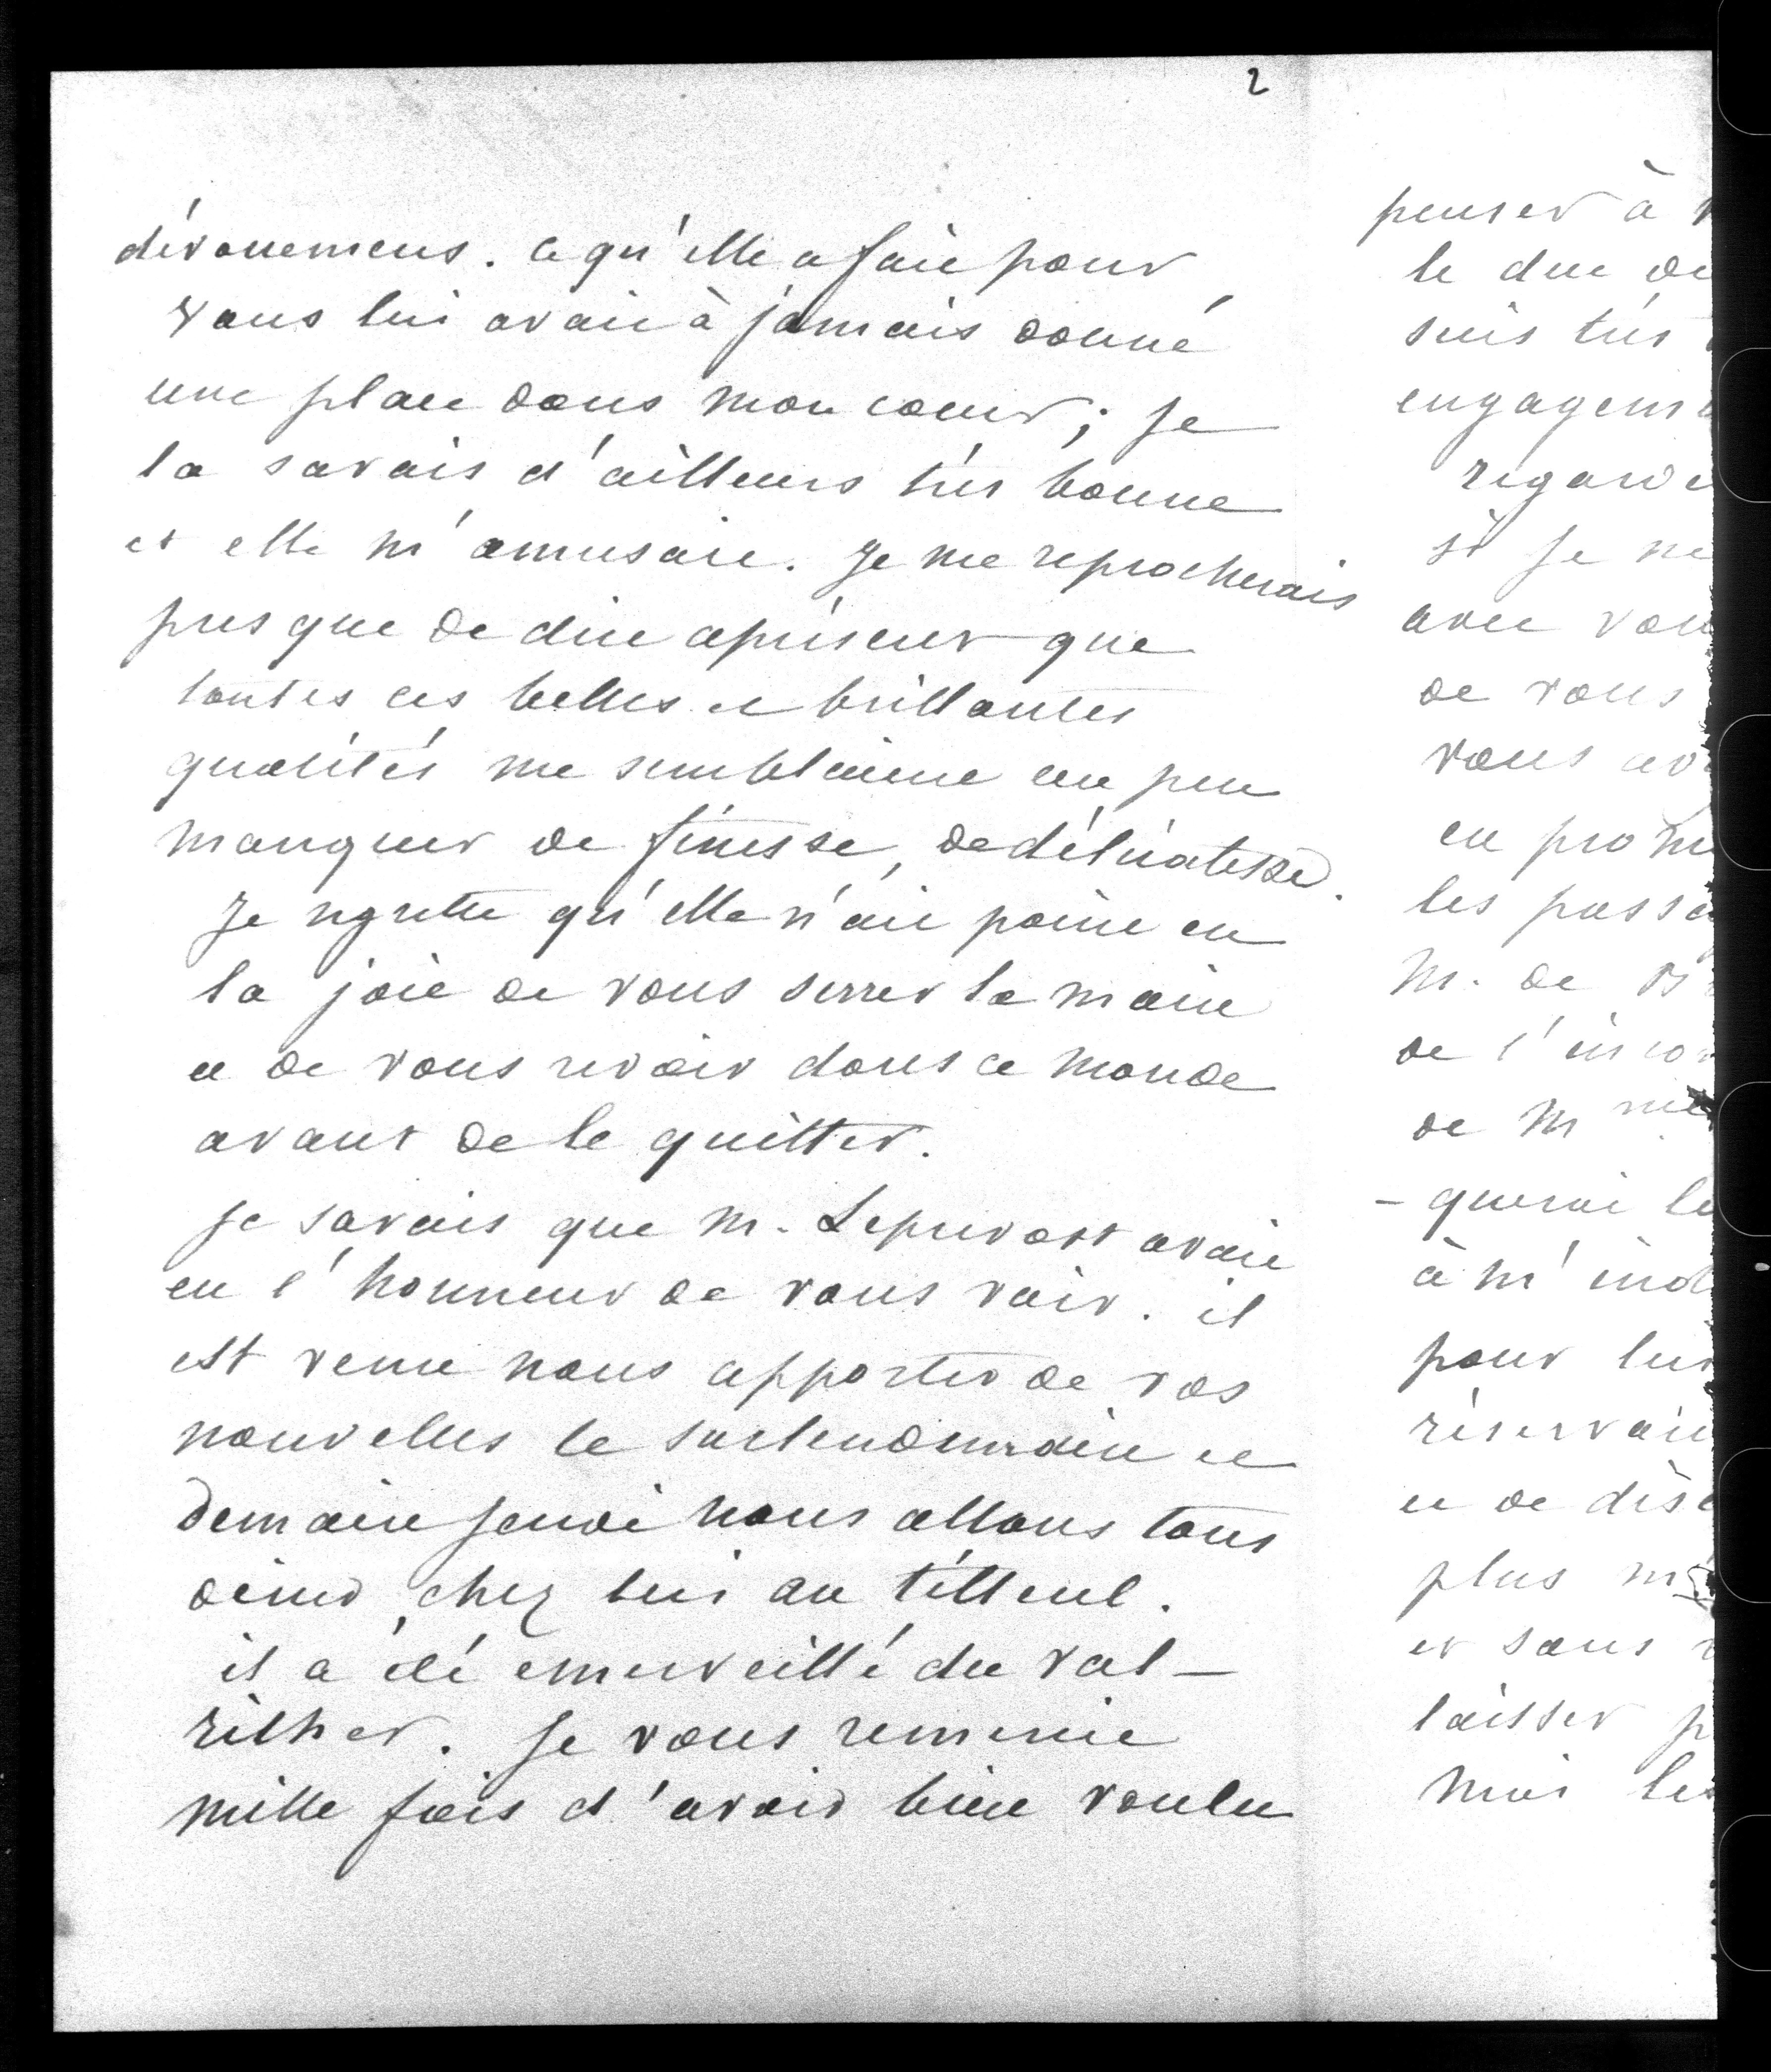 2
dévouement. ce qu'elle a fait pour
vous lui avait à jamais donné
une place dans mon coeur ; je
la savais d'ailleurs très bonne
et elle m'amusait. Je me reprocherais
presque de dire à présent que
toutes ces belles et brillantes
qualités me semblaient un peu
manquer de finesse, de délicatesse.
Je regrette qu'elle n'ait point eu
la joie de vous serrer la main
et de vous revoir dans ce monde
avant de le quitter.
je savais que M. Leprevost avait
eu l'honneur de vous voir. il
est venu nous apporter de vos
nouvelles le surlendemain et
demain jeudi nous allons tous
diner chez lui au tilleul.
il a été emerveillé du val-
richer. je vous remercie
mille fois d'avoir bien voulu
penser à
le duc de
suis très
engagem
regarde
si je ne
avec vou
de vous
vous av
en prom
les passa
M. de B
de l'incon
de Mme
- querai le
à m'ind
pour lui
réservait
et de dis
plus
et sans
laisser p
moi les